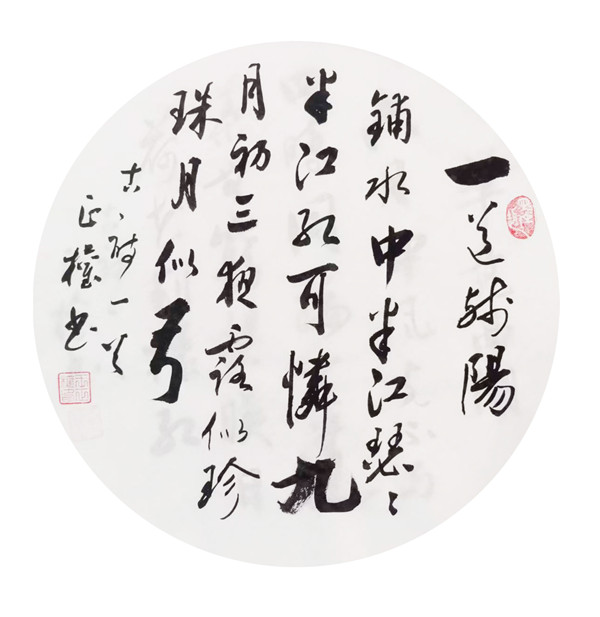 一道残陽
鋪水中半江瑟々
半江紅可憐九
月初三夜露似珍
珠月似弓
古人詩一首
正權書